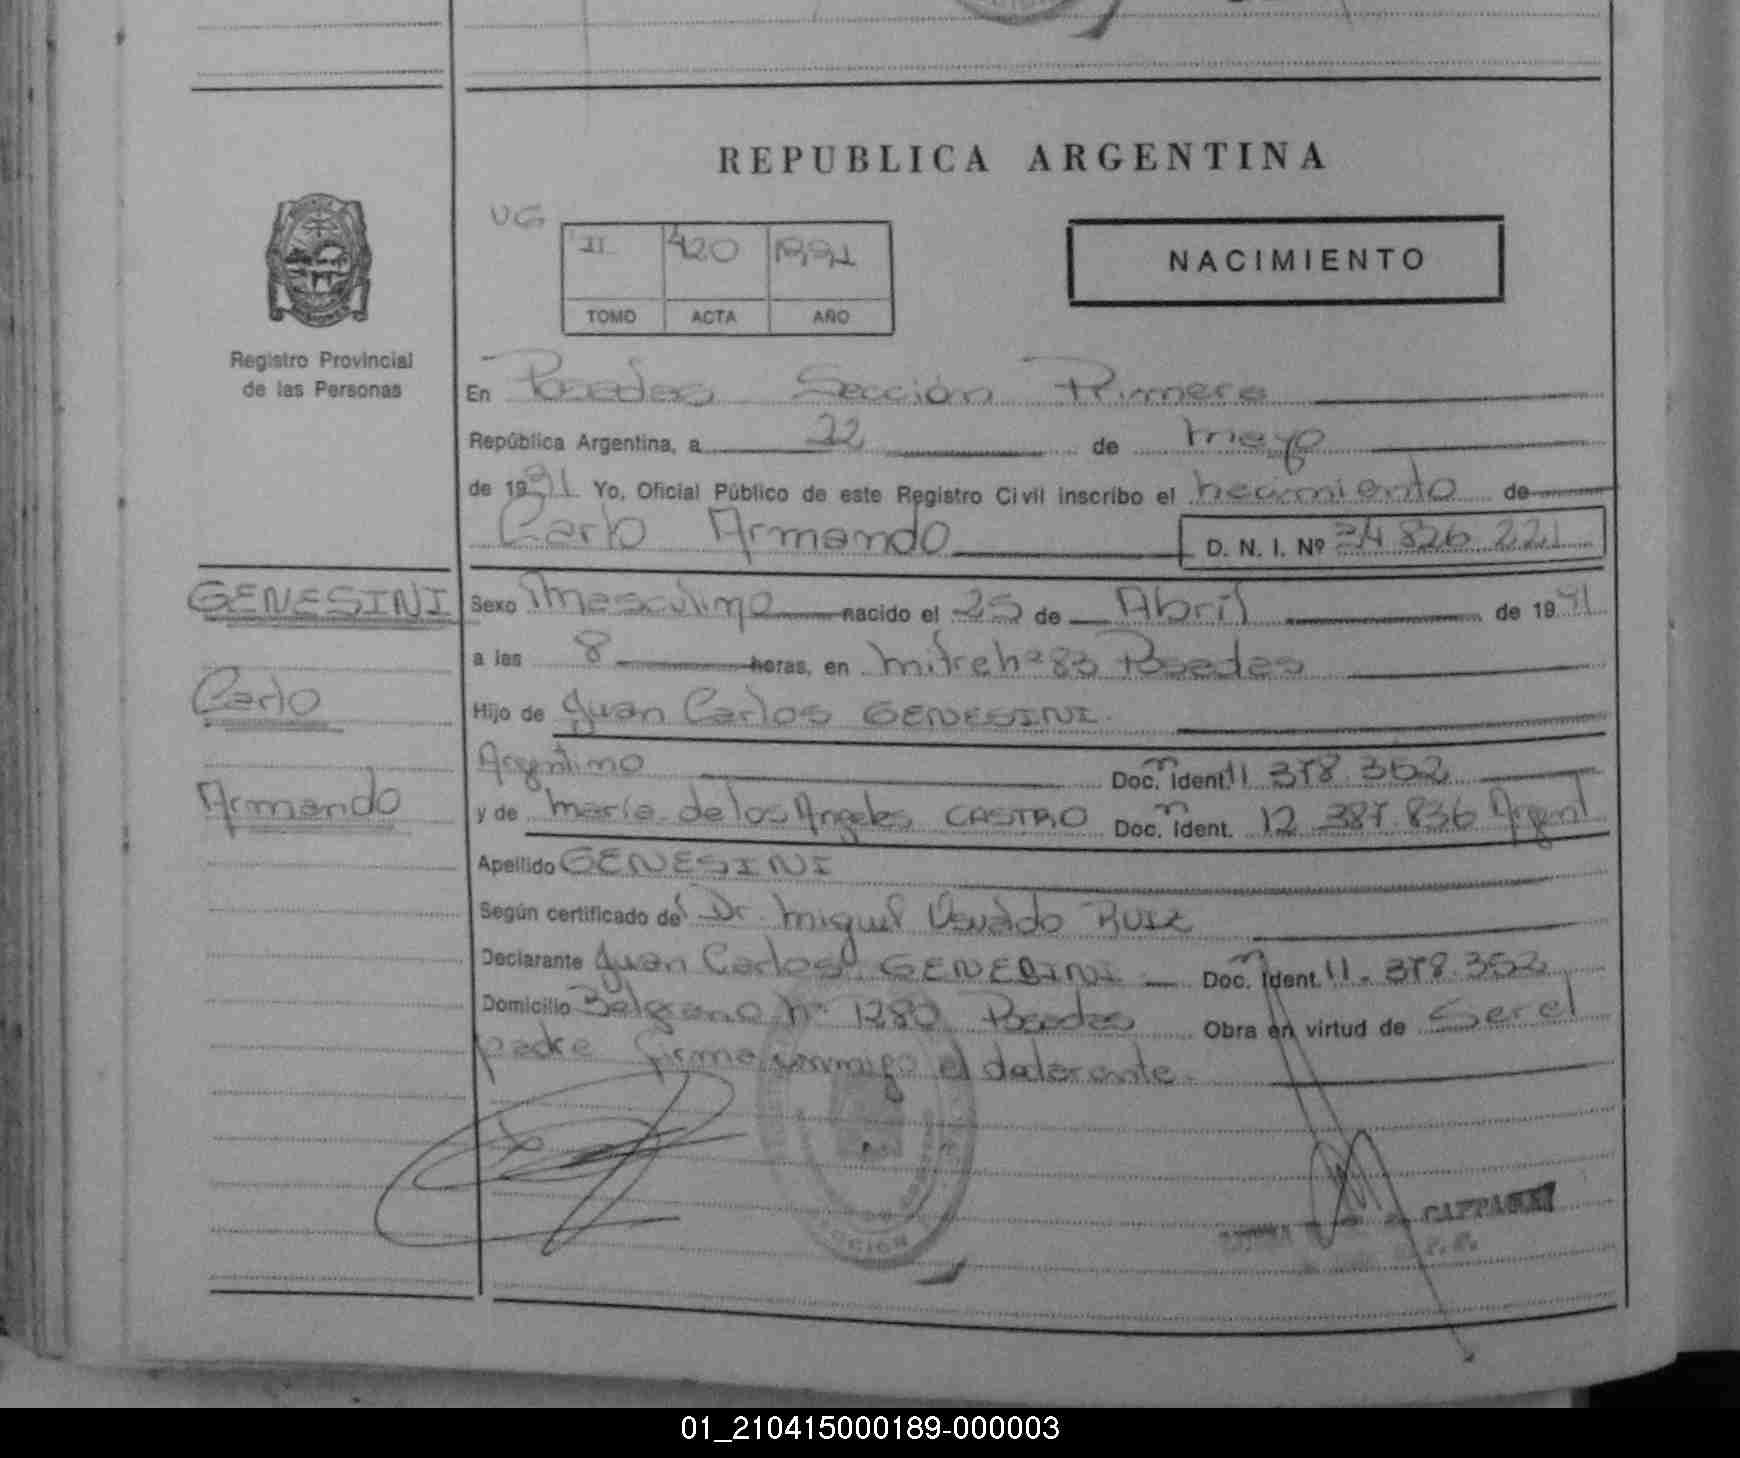 REPUBLICA ARGENTINA
UG
II 420 1991
TOMO ACTA AÑO
NACIMIENTO
Registro Provincial
de las Personas
En Posadas Sección Primera
República Argentina, a 22 de mayo
de 1991 Yo, Oficial Público de este Registro Civil inscribo el nacimiento de
Carlo Armando D. N. I. Nº 34 826 221
GENESINI
Carlo
Armando
Sexo Masculino nacido el 25 de Abril de 1991
a las 8 horas, en Mitre nº 83 Posadas
Hijo de Juan Carlos GENESINI.
Argentino Doc. Ident. 11 378.352
y de María de los Angeles CASTRO Doc. Ident. 12 387.836 Argent
Apellido GENESINI
Según certificado del Dr. Miguel Osvaldo RUIZ
Declarante Juan Carlos GENESINI Doc. Ident. 11.378.352
Domicilio Belgrano nº 1280 Posadas Obra en virtud de Ser el
padre firma conmigo el declarante.
01_210415000189-000003